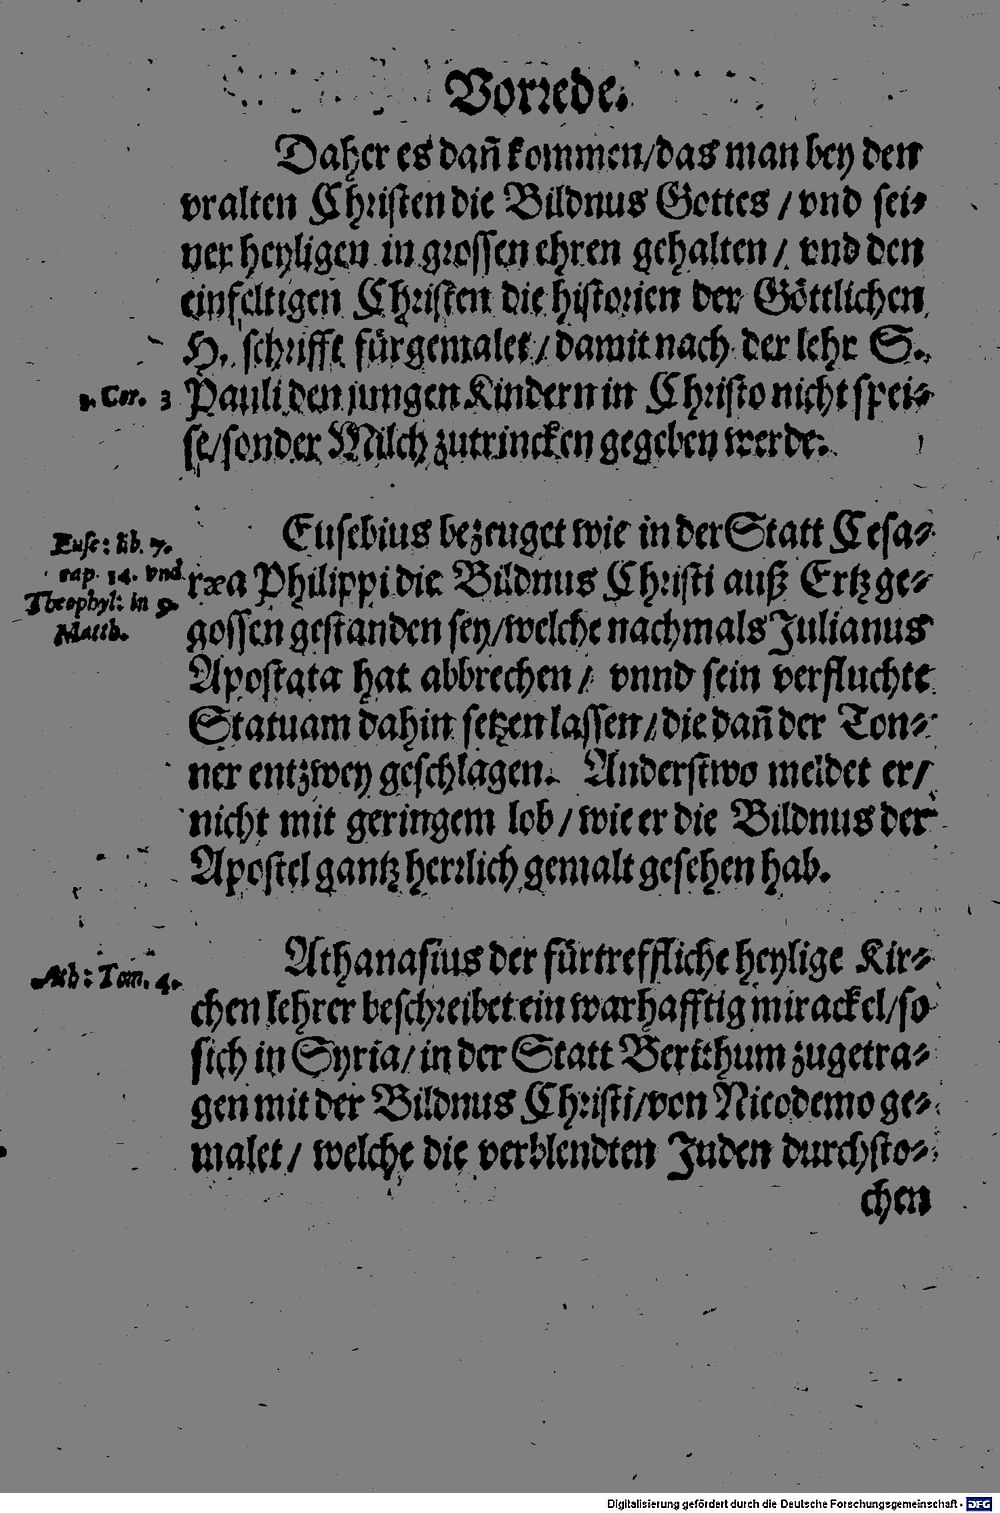 Vorrede.
Daher es dañ kommen/das man bey den
vralten Christen die Bildnus Gottes / vnd sei-
ner heyligen in grossen ehren gehalten / vnd den
einfeltigen Christen die historien der Göttlichen
H. schrifft fürgemalet / damit nach der lehr S.
1. Cor. 3
Pauli den jungen Kindern in Christo nicht spei-
se/sonder Milch zutrincken gegeben werde.
Eusebius bezeuget wie in der Statt Cesa-
Euse: lib. 7.
cap. 14. vnd
Theophyl: in 9.
Matth.
ræa Philippi die Bildnus Christi auß Ertz ge-
gossen gestanden sey/welche nachmals Julianus
Apostata hat abbrechen / vnnd sein verfluchte
Statuam dahin setzen lassen / die dañ der Ton-
ner entzwey geschlagen. Anderstwo meldet er/
nicht mit geringem lob / wie er die Bildnus der
Apostel gantz herrlich gemalt gesehen hab.
Athanasius der fürtreffliche heylige Kir-
Ath: Tom. 4.
chen lehrer beschreibet ein warhafftig mirackel/so
sich in Syria/ in der Statt Berithum zugetra-
gen mit der Bildnus Christi/von Nicodemo ge-
malet / welche die verblendten Juden durchsto-
chen
Digitalisierung gefördert durch die Deutsche Forschungsgemeinschaft - DFG